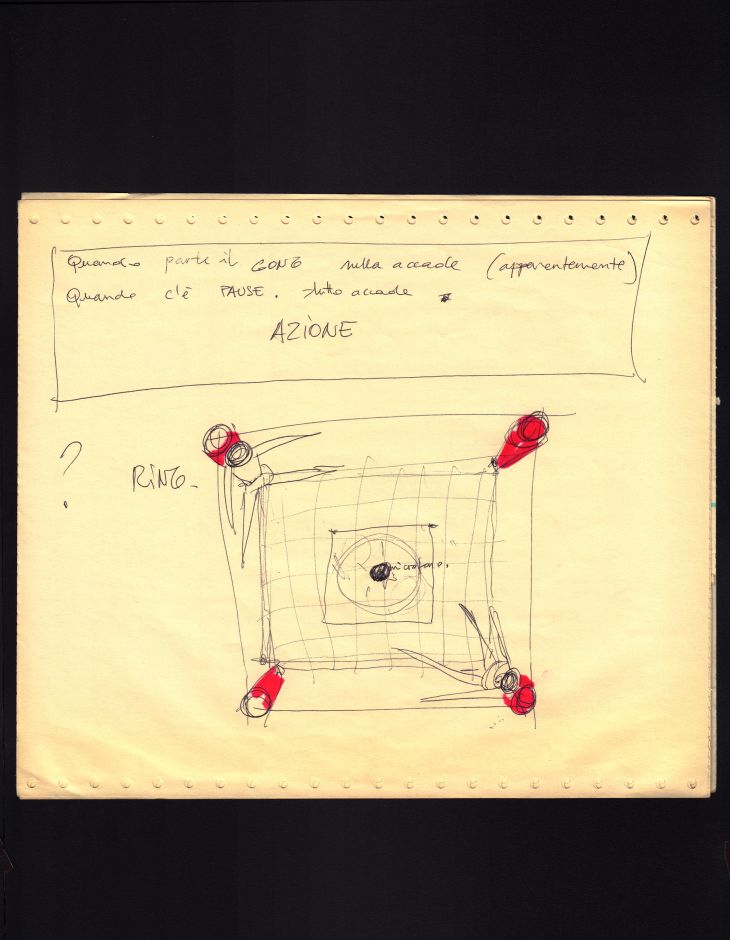 Quando parte il GONG nulla accade (apparentemente)
Quando c'è PAUSE. tutto accade
AZIONE
?
RING.
microfono.